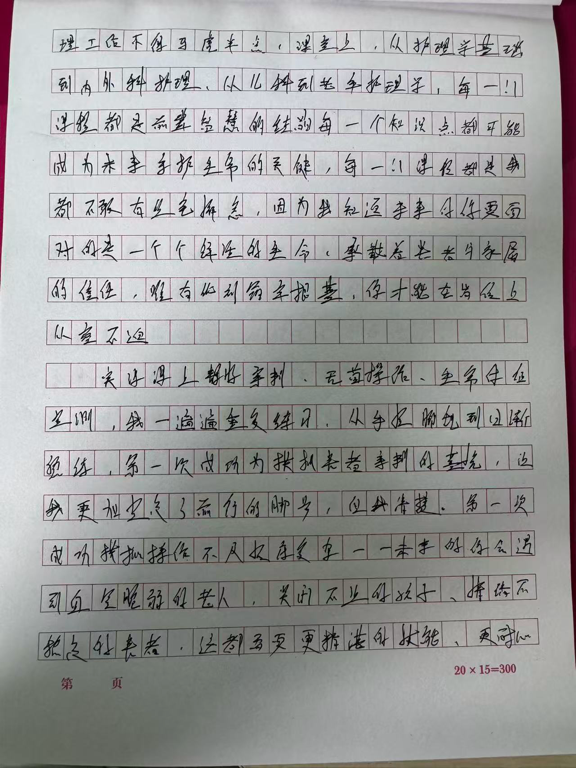 理工作不得马虎半点，课堂上，从护理学基础
到内外科护理、从儿科到老年护理学，每一门
课程都是前辈智慧的结晶每一个知识点都可能
成为未来守护生命的关键，每一门课程都是我
都不敢有丝毫懈怠，因为我知道未来你更面
对的是一个个鲜活的生命、承载着患者与家属
的信任，唯有此刻筑牢根基，你才能在岗位上
从容不迫
实训课上静脉穿刺、无菌操作、生命体征
监测，我一遍遍重复练习、从手忙脚乱到逐渐
熟练，第一次成功为模拟患者穿刺的喜悦，让
我更坚定了前行的脚步，但我清楚、第一次
成功模拟操作不只是 一一未来的你会遇
到血管脆弱的老人，哭闹不止的孩子、情绪不
稳定的患者，这都需要更精湛的技能、更耐心
第 页
20×15=300